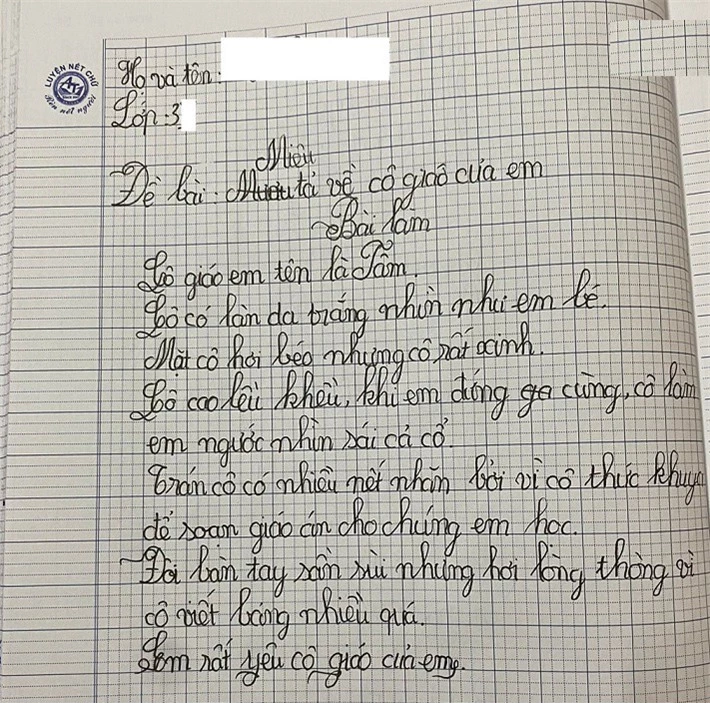 LUYỆN NÉT CHỮ
Rèn nết người
Họ và tên:
Lớp:3
Miêu
Đề bài: tả về cô giáo của em
Bài làm
Cô giáo em tên là Tâm.
Cô có làn da trắng nhìn như em bé.
Mặt cô hơi béo nhưng cô rất xinh.
Cô cao lêu khêu, khi em đứng ga cùng, cô làm
em ngước nhìn sái cả cổ.
Trán cô có nhiều nết nhăn bởi vì cô thức khuya
để soạn giáo án cho chúng em học.
Đôi bàn tay sần sùi nhưng hơi lòng thòng vì
cô viết bảng nhiều quá.
Em rất yêu cô giáo của em.